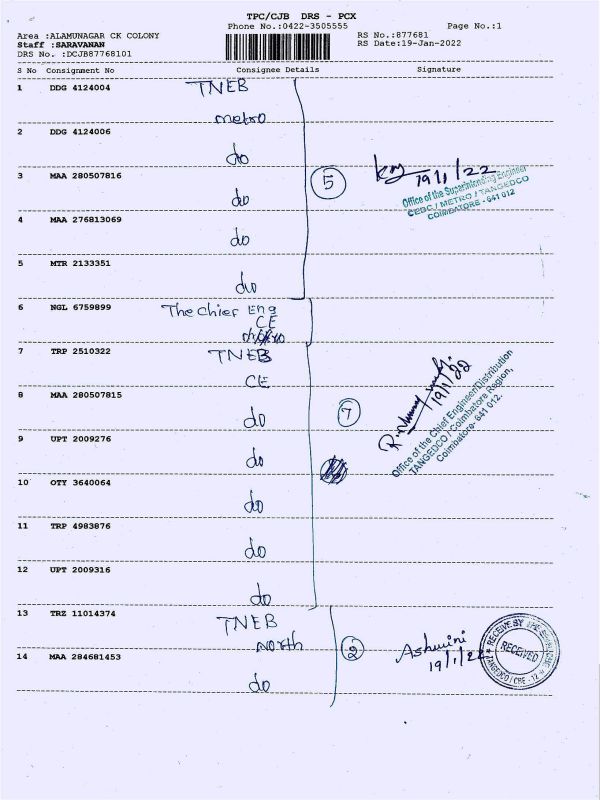 TPC/CJB DRS - PCX
Phone No.:0422-3505555 Page No.:1
Area :ALAMUNAGAR CK COLONY RS No.:877681
Staff :SARAVANAN RS Date:19-Jan-2022
DRS No. :DCJB87768101
S No Consignment No Consignee Details Signature
1 DDG 4124004 TNEB
metro
2 DDG 4124006
do
3 MAA 280507816 5 19/1/22
do
Office of the Superintending Engineer
CEDC / METRO / TANGEDCO
COIMBATORE - 641 012
4 MAA 276813069
do
5 MTR 2133351
do
6 NGL 6759899 The Chief Eng
CE
7 TRP 2510322 TNEB
CE
19/1/22
8 MAA 280507815
do 7
Office of the Chief Engineer/Distribution
TANGEDCO / Coimbatore Region,
Coimbatore- 641 012.
9 UPT 2009276
do
10 OTY 3640064
do
11 TRP 4983876
do
12 UPT 2009316
do
13 TRZ 11014374 TNEB
North 2 Ashwini
19/1/22
RECEIVED
TANGEDCO / CBE - 12
14 MAA 284681453
do